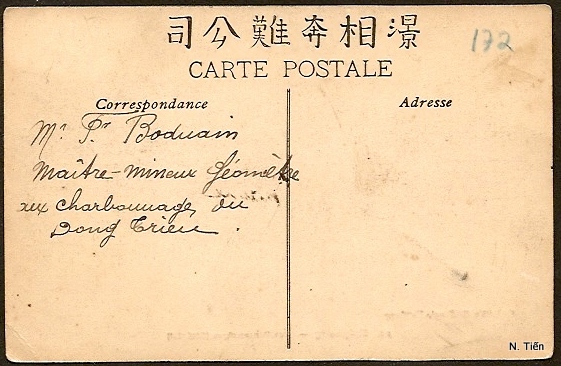 澋相奔難公司
172
CARTE POSTALE
Correspondance
Adresse
Mr Pr Boduain
Maître-mineur Géomètre
aux Charbonnages du
Dong Trieu.
N. Tiến